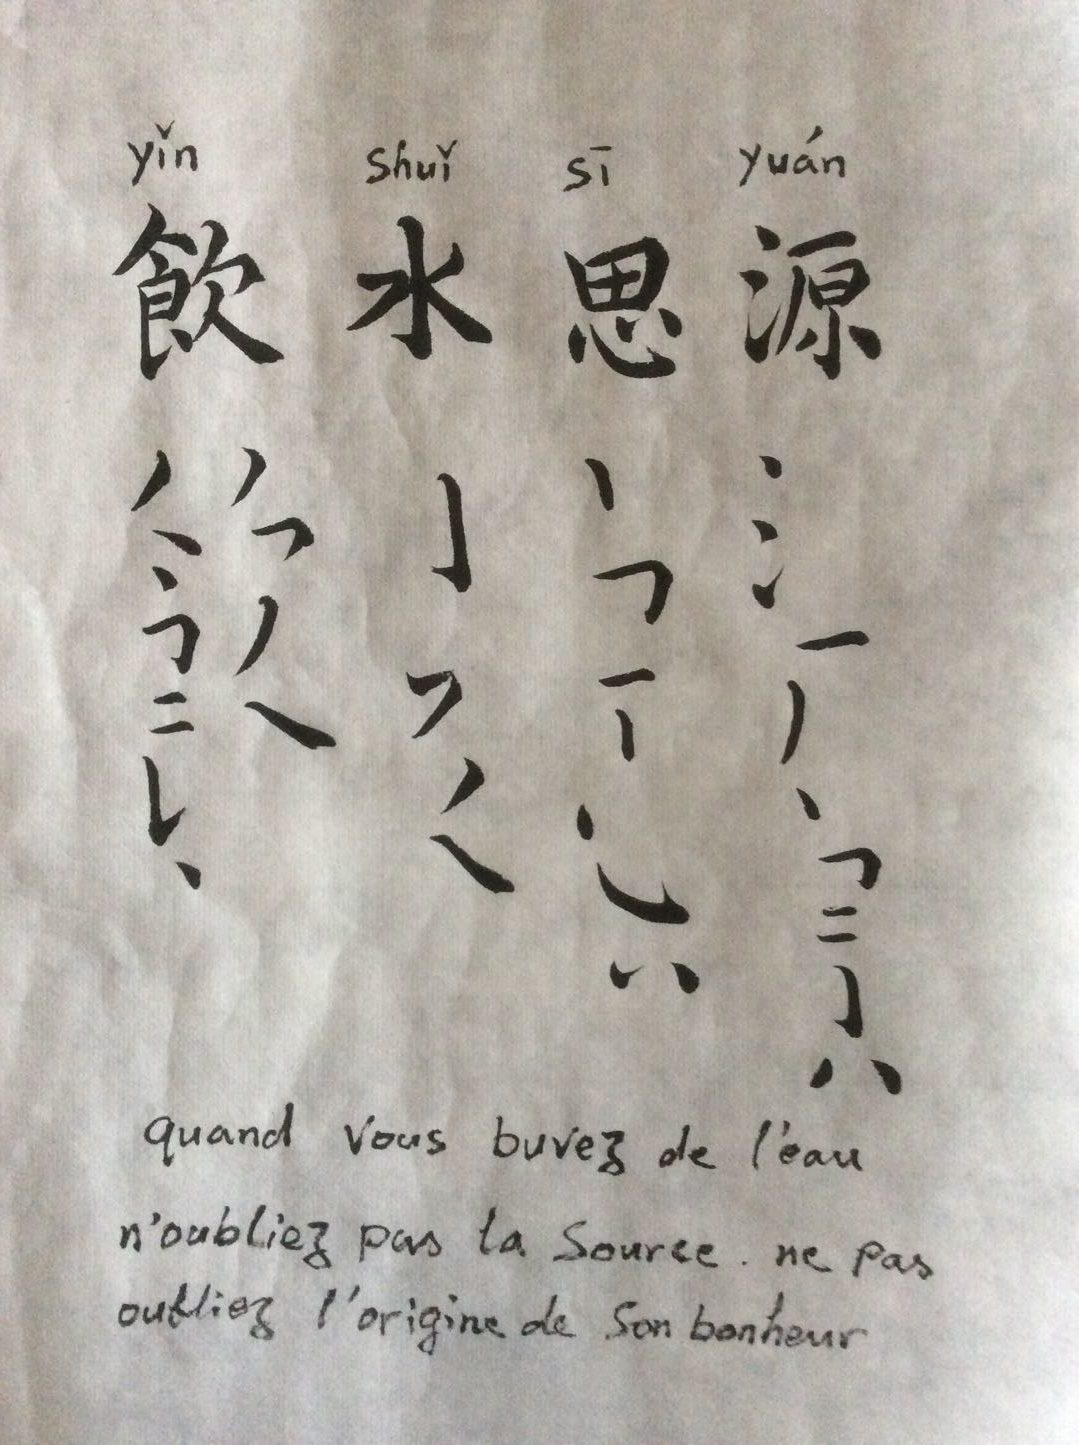 yǐn shuǐ sī yuán
飲水思源
quand vous buvez de l'eau
n'oubliez pas la source. ne pas
oubliez l'origine de son bonheur